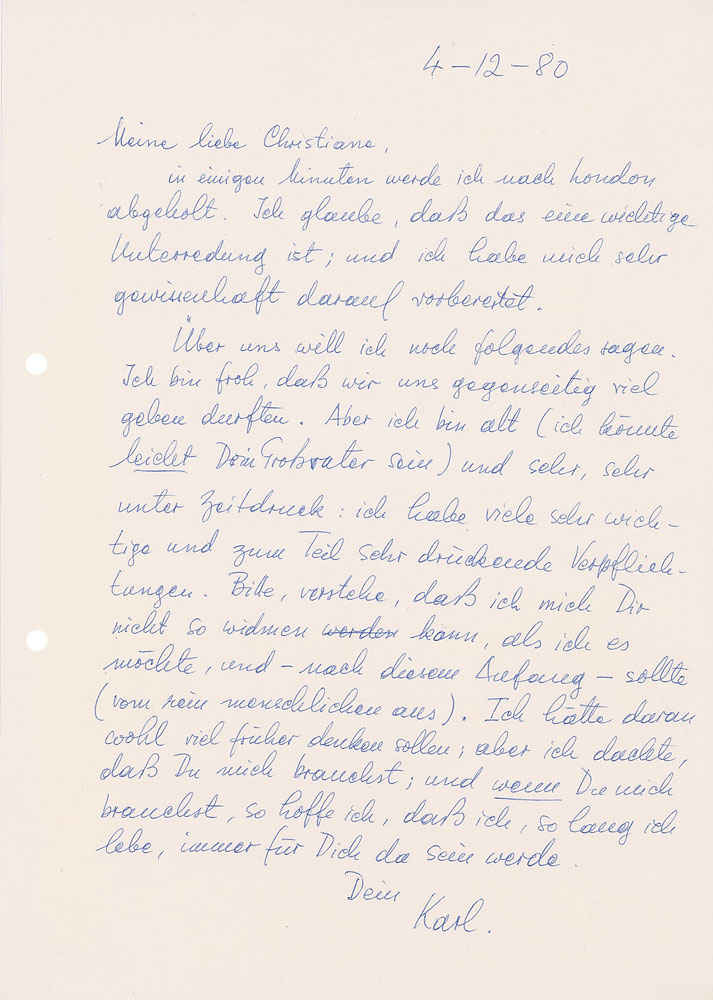 4-12-80
Meine liebe Christiane,
in einigen Minuten werde ich nach London
abgeholt. Ich glaube, daß das eine wichtige
Unterredung ist; und ich habe mich sehr
gewissenhaft darauf vorbereitet.
Über uns will ich noch folgendes sagen.
Ich bin froh, daß wir uns gegenseitig viel
geben durften. Aber ich bin alt (ich könnte
leicht Dein Großvater sein) und sehr, sehr
unter Zeitdruck: ich habe viele sehr wich-
tige und zum Teil sehr drückende Verpflich-
tungen. Bitte, verstehe, daß ich mich Dir
nicht so widmen werden kann, als ich es
möchte, und - nach diesem Anfang - sollte
(vom rein menschlichen aus). Ich hätte daran
wohl viel früher denken sollen; aber ich dachte,
daß Du mich brauchst; und wenn Du mich
brauchst, so hoffe ich, daß ich, so lang ich
lebe, immer für Dich da sein werde.
Dein
Karl.